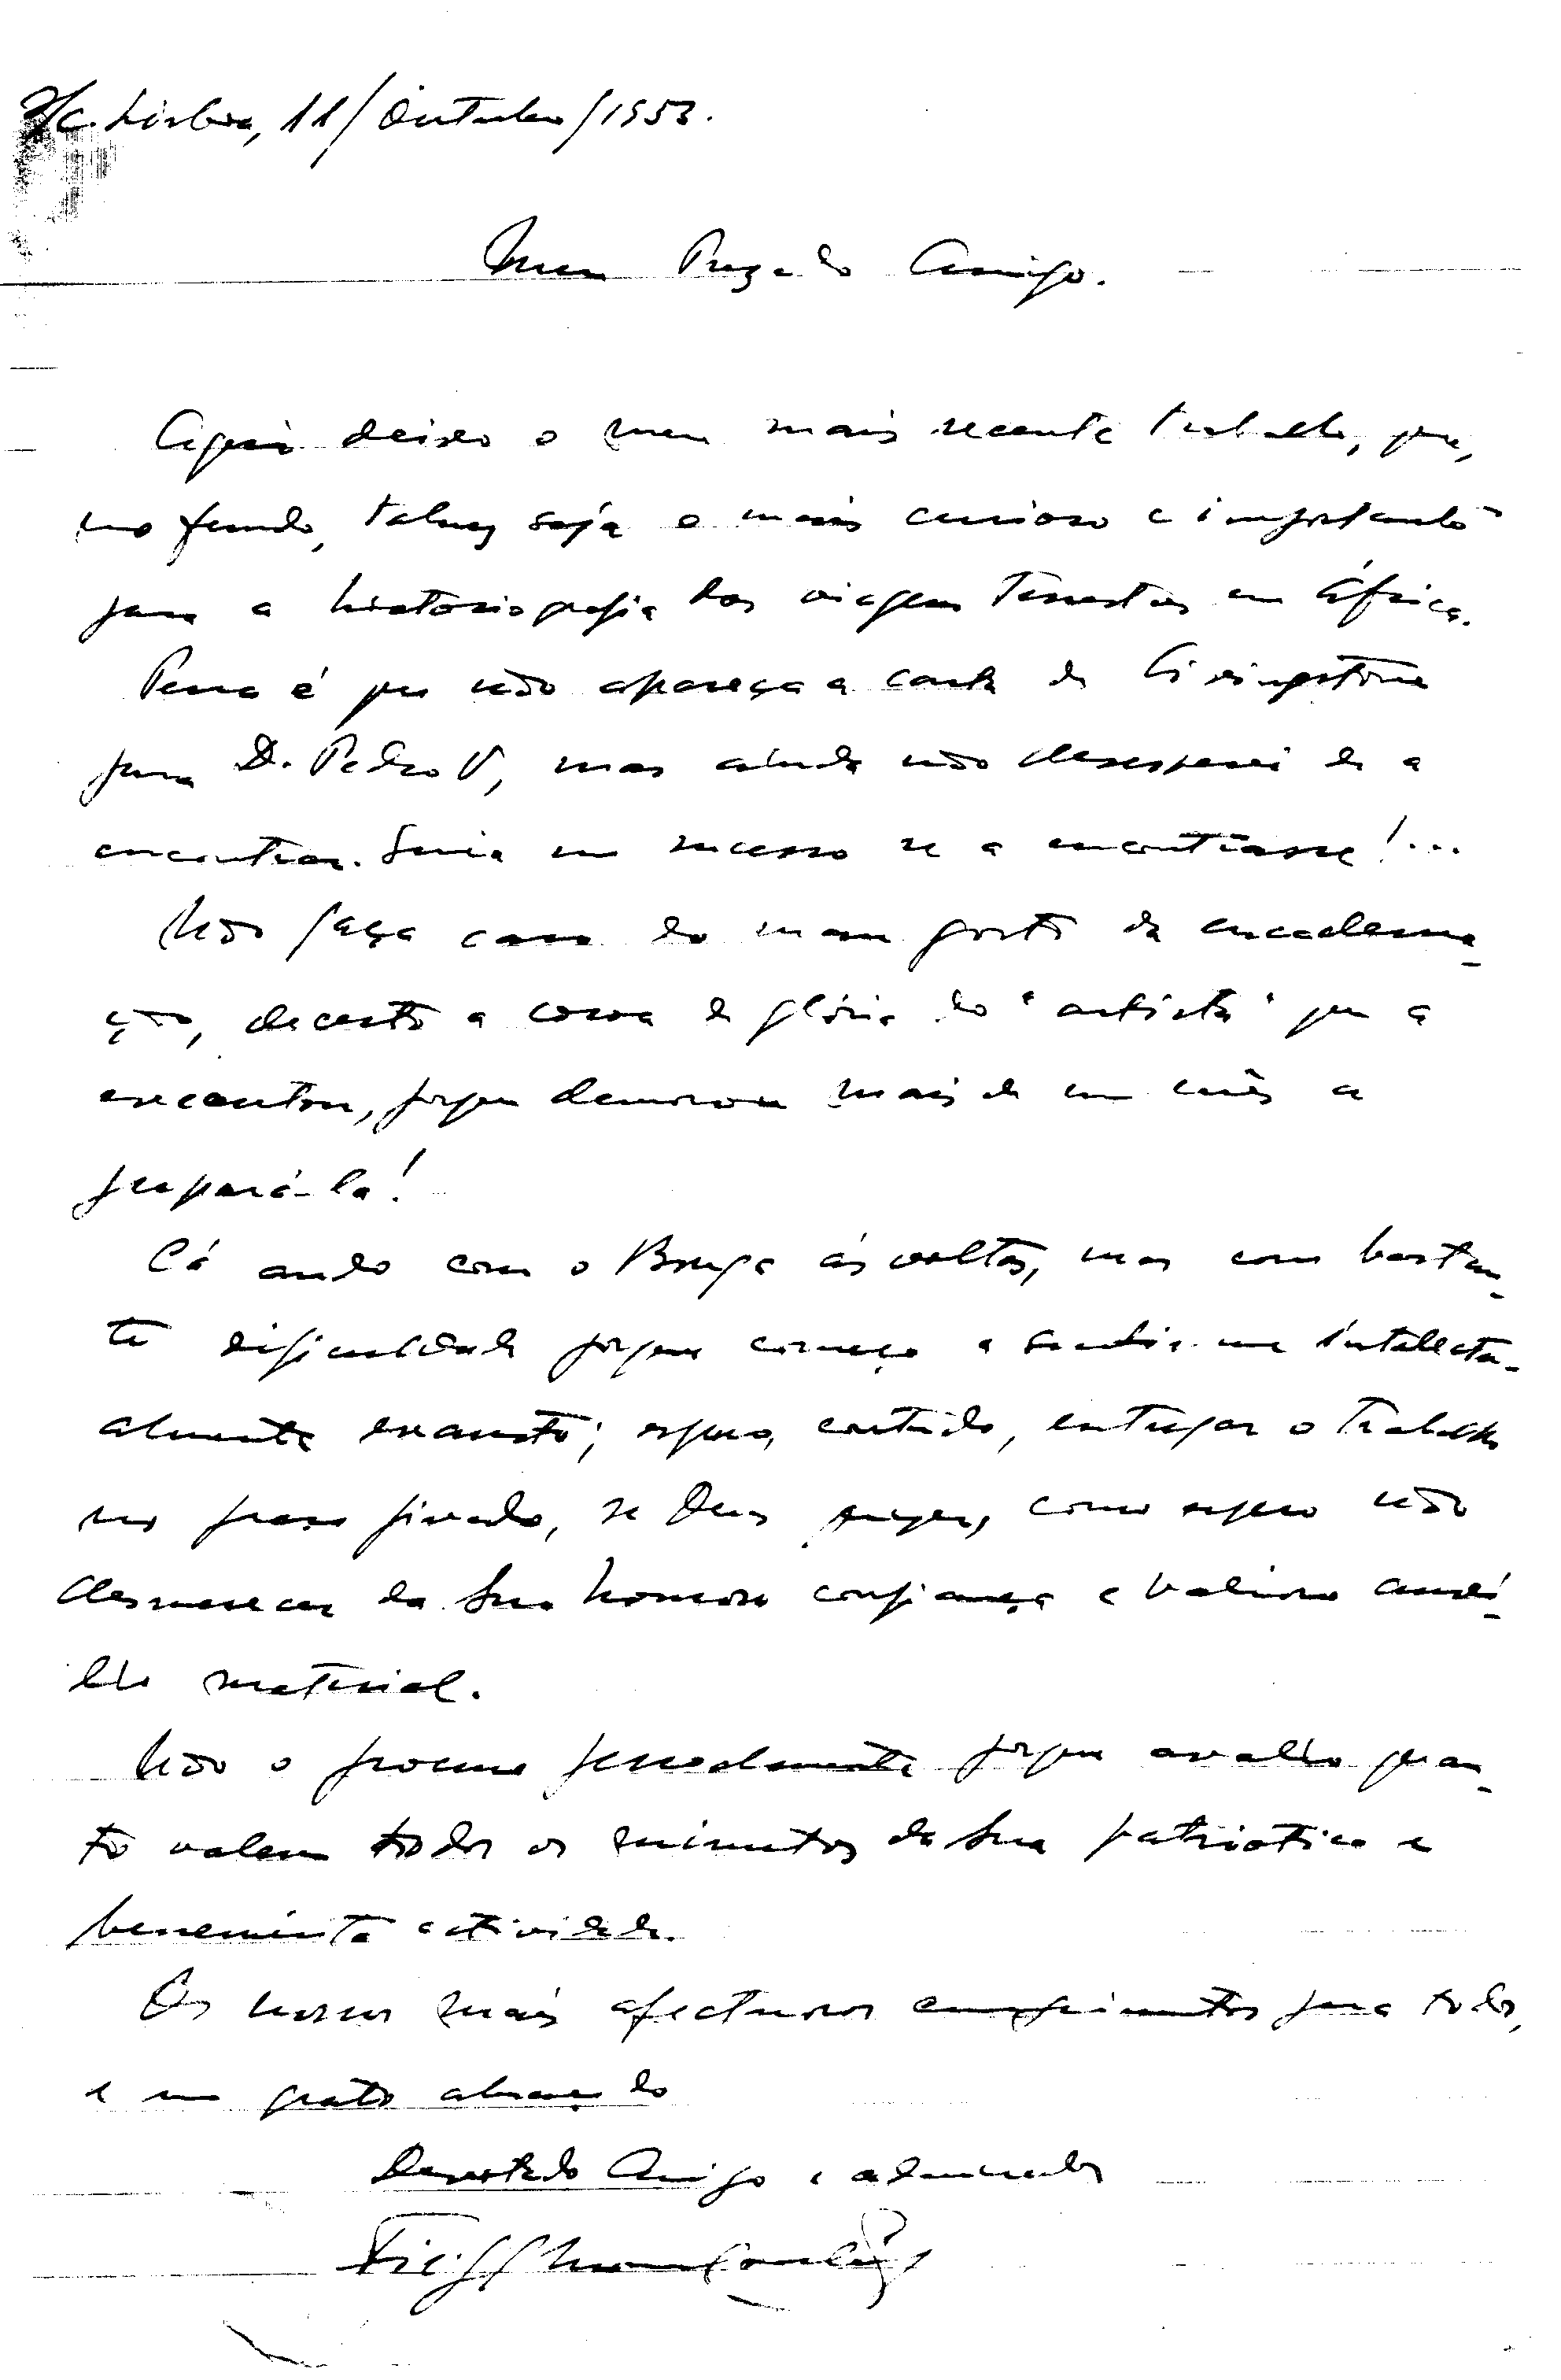 S/c. Lisboa, 11/Outubro/1953.
Meu Prezado Amigo.
Aqui deixo o meu mais recente trabalho, que,
no fundo, talvez seja o mais curioso e importante
para a historiografia das viagens terrestres em África.
Pena é que não apareça a carta de Livingstone
para D. Pedro V, mas ainda não desesperei de a
encontrar. Seria um sucesso se a encontrasse!...
Não faça caso do mau gosto da encaderna-
ção, decerto a coroa de glória do "artista" que a
executou, porque demorou mais de um mês a
prepará-la!
Cá ando com o Bruga ás voltas, mas com bastan-
te dificuldade porque começo a sentir-me intelectu-
almente exausto; espero, contudo, entregar o trabalho
no prazo fixado, se Deus quizer, como espero não
desmerecer da Sua honrosa confiança e valioso auxí-
lio material.
Não o procuro pessoalmente porque avalio quan-
to valem todos os minutos da Sua patriotica e
benemérita actividade.
Os nossos mais afectuosos cumprimentos para todos,
e um grato abraço do
Devotado Amigo e admirador